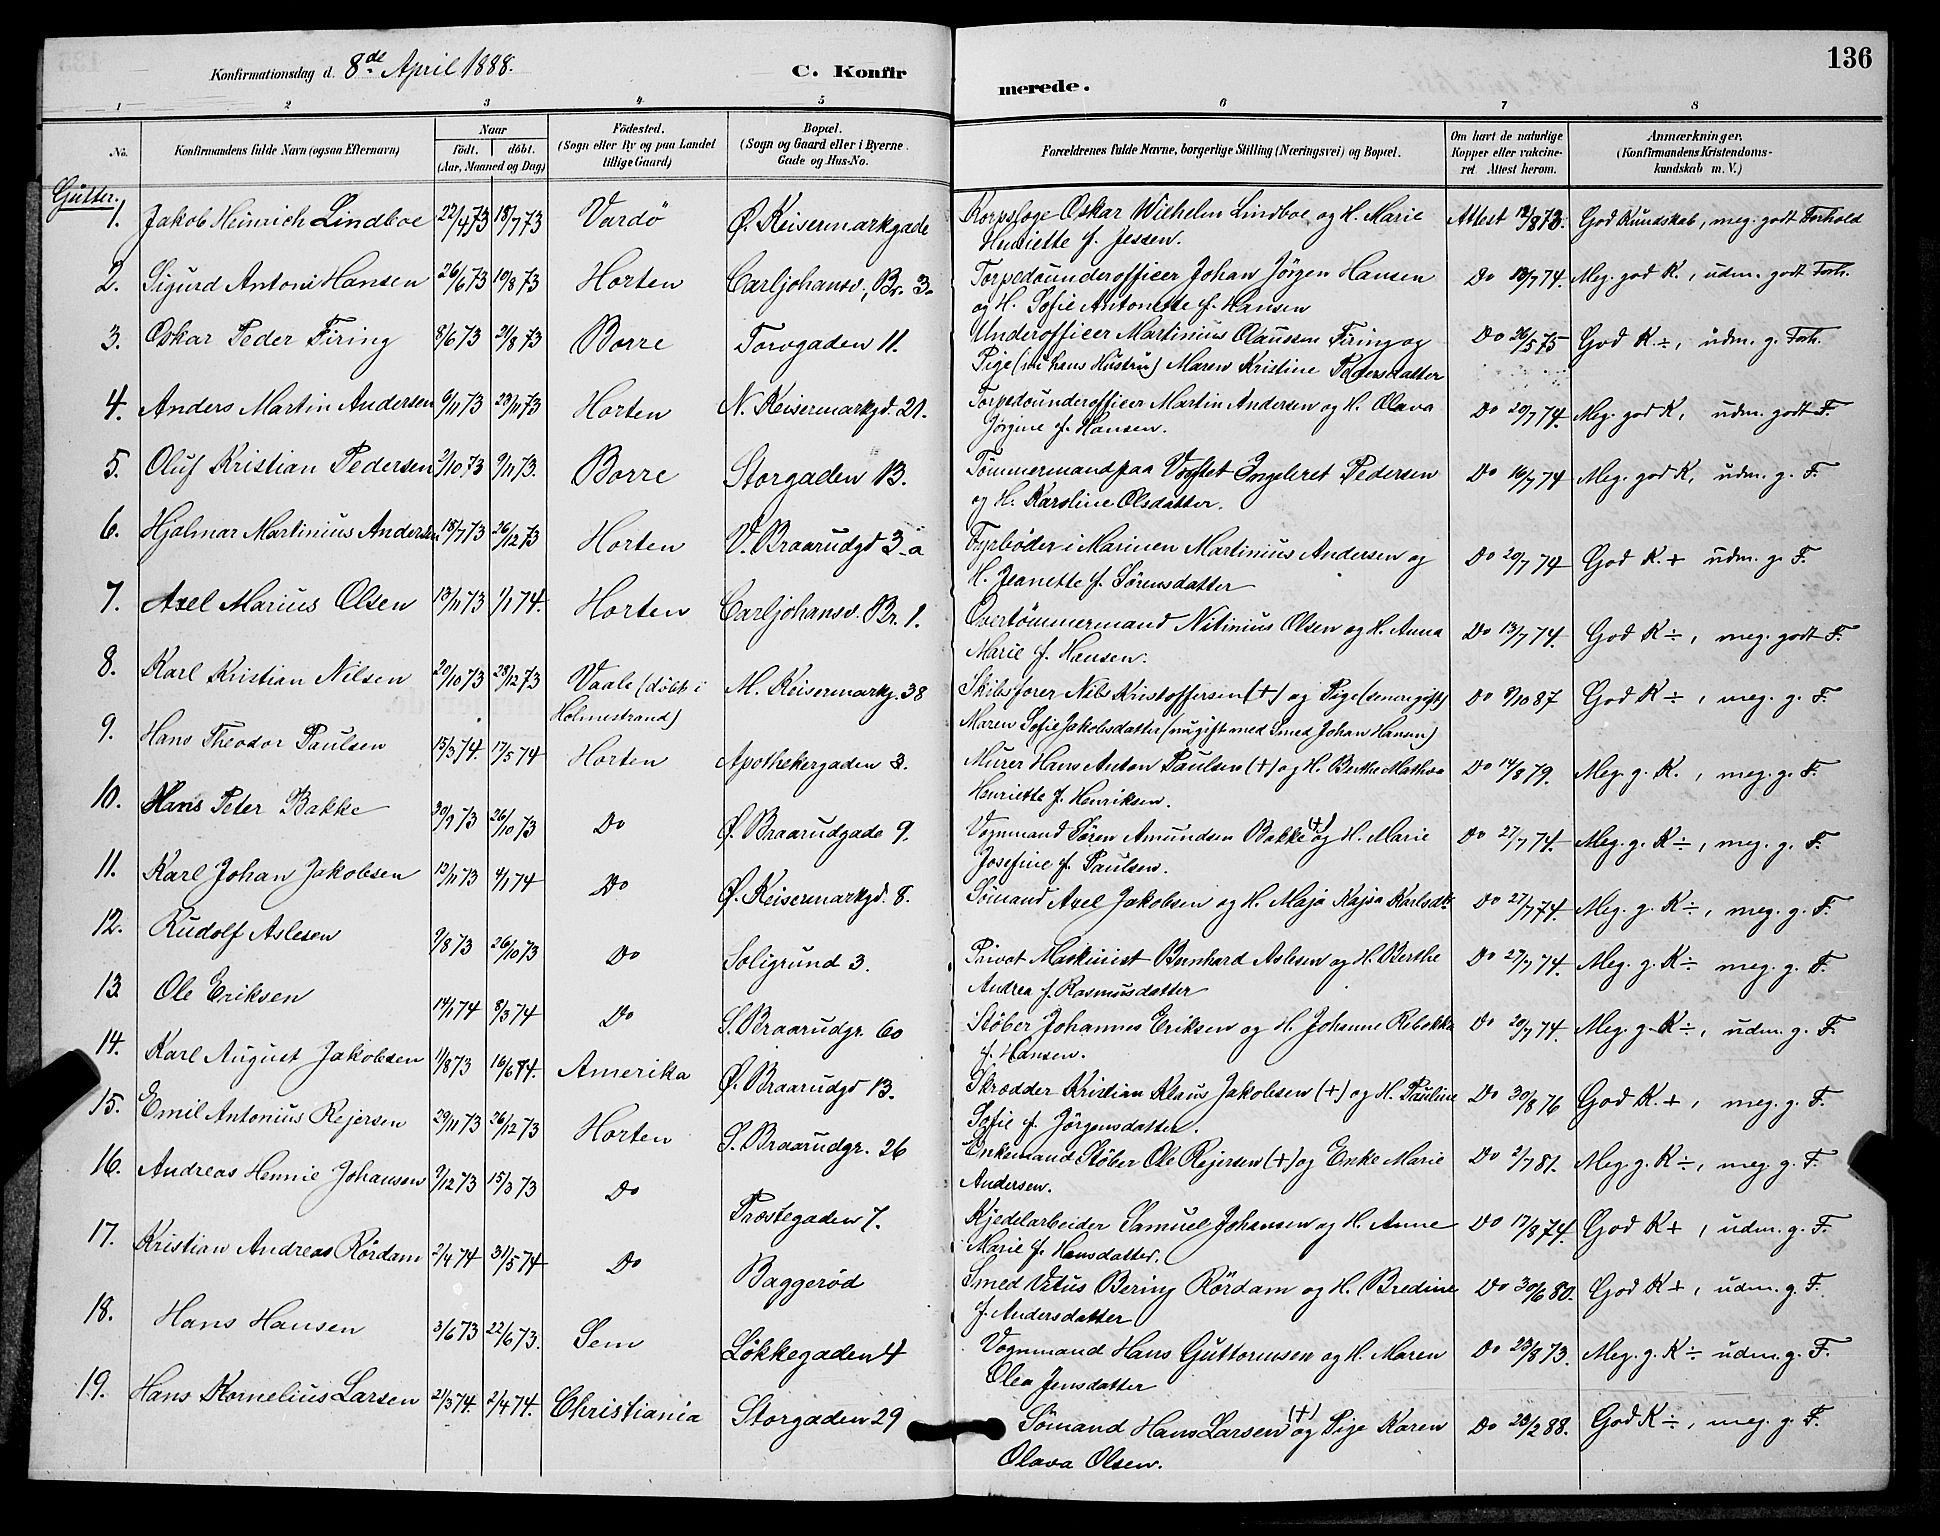 136
Konfirmationsdag d. 8de April 1888.
C. Konfirmerede.
1 2 3 4 5 6 7 8
No.
Konfirmandens fulde Navn (ogsaa Efternavn)
Naar
Födt. döbt.
(Aar, Maaned og Dag)
Födested.
(Sogn eller By og paa Landet tillige Gaard)
Bopæl.
(Sogn og Gaard eller i Byerne Gade og Hus-No.
Forældrenes fulde Navne, borgerlige Stilling (Næringsvei) og Bopæl.
Om havt de naturlige Kopper eller vakcineret. Attest herom.
Anmærkninger.
(Konfirmandens Kristendomskundskab m. V.)
Gutter.
1. Jakob Heinrich Lindboe 22/4 73 18/7 73 Vardö Ø. Keisermarkgade Korpsloge Oskar Wilhelm Lindboe og H. Marie Attest 12/8 73. God Kundskab, meg. godt Forhold
Henriette f. Jessen.
2. Sigurd Antoni Hansen 26/6 73 10/8 73 Horten Carljohansv, Br. 3. Torpedounderofficer Johan Jörgen Hansen Do 13/7 74. Meg. god K., udm. godt Forh.
og H. Sofie Antonette f. Hansen
3. Oskar Peder Firing 8/6 73 21/8 73 Borre Torvgaden 11. Underofficer Martinius Olaussen Firing og Do 26/5 75 God K. ÷, udm. g. Forh.
Pige (nu hans Hustru) Maren Kristine Pedersdatter
4. Anders Martin Andersen 9/11 73 23/11 73 Horten N. Keisermarkgd. 21. Torpedounderofficer Martin Andersen og H. Olava Do 20/7 74. Meg. god K, udm. godt F.
Jörgine f. Hansen.
5. Oluf Kristian Pedersen 2/10 73 9/11 73. Borre Storgaden 13. Tömmermand paa Værftet Ingeleret Pedersen Do 16/7 74 Meg. god K, udm. g. F.
og H. Karoline Olsdatter.
6. Hjalmar Martinius Andersen 18/7 73 26/12 73 Horten V. Braarudgd 3-a Fyrböder i Marinen Martinius Andersen og Do 20/7 74 God K. + udm. g. F.
H. Jeanette f. Sörensdatter
7. Axel Marius Olsen 13/11 73 1/1 74. Horten Carljohansv. Br. 1. Overtömmermand Nitinius Olsen og H. Anna Do 13/7 74. God K ÷, meg. godt F.
Marie f. Hansen.
8. Karl Kristian Nilsen 20/10 73 28/12 73 Vaale (döbt i M. Keisermarkg. 38 Skibsförer Nils Kristoffersen (+) og Pige (senere gift) Do 9/10 87 God K ÷, meg. g. F.
Holmestrand) Maren Sofie Jakobsdatter (nu gift med Smed Johan Hansen)
9. Hans Theodor Paulsen 15/3 74. 17/5 74 Horten Apothekergaden 3. Murer Hans Anton Paulsen (+) og H. Berthe Mathea Do 14/8 79. Meg. g. K., meg. g. F.
Henriette f. Henriksen.
10. Hans Peter Bakke 30/9 73 26/10 73 Do Ø. Braarudgade 9. Vognmand Sören Amundsen Bakke (+) og H. Marie Do 27/7 74. Meg. g. K ÷, meg. g. F.
Josefine f. Paulsen.
11. Karl Johan Jakobsen 13/11 73 4/1 74 Do Ø. Keisermarkgd. 8. Sömand Axel Jakobsen og H. Maja Kajsa Karlsdtr Do 27/7 74. Meg. g. K ÷, meg. g. F.
12. Rudolf Aslesen 9/8 73 26/10 73 Do Soligrund 3. Privat Maskinist Bernhard Aslesen og H. Berthe Do 27/7 74. Meg. g. K ÷ meg. g. F.
Andrea f. Rasmusdatter
13 Ole Eriksen 14/1 74 8/3 74 Do S. Braarudgr. 60 Stöber Johannes Eriksen og H. Johanne Rebekka Do 20/7 74. Meg. g. K ÷, udm. g. F.
f. Hansen.
14. Karl August Jakobsen 11/8 73 16/6 74. Amerika Ø. Braarudgd 13. Skrædder Kristian Klaus Jakobsen (+) og H. Pauline Do 30/8 76 God K. +, meg. g. F.
Sofie f. Jörgensdatter.
15. Emil Antonius Rejersen 29/11 73 26/12 73 Horten S. Braarudgr. 26 Enkemand Stöber Ole Rejersen (+) og Enke Marie Do 2/7 81. Meg. g. K ÷, meg. g. F.
Andersen.
16. Andreas Hennie Johansen 9/12 73 15/3 73 Do Præstegaden 7. Kjedelarbeider Samuel Johansen og H. Anne Do 17/8 74. God K +, udm. g. F.
Marie f. Hansdatter.
17. Kristian Andreas Rördam 2/4 74 31/5 74 Do Baggeröd Smed Vitus Bering Rördam og H. Bredine Do 30/6 80. God K +, udm. g. F.
f. Andersdatter
18. Hans Hansen 3/6 73 22/6 73. Sem Lökkegaden 4 Vognmand Hans Guttormsen og H. Maren Do 23/8 73. Meg. g. K ÷ udm. g. F.
Olea Jensdatter
19. Hans Kornelius Larsen 21/3 74. 2/4 74. Christiania Storgaden 29 Sömand Hans Larsen (+) og Pige Karen Do 20/2 88. God K ÷, meg. g. F.
Olava Olsen.